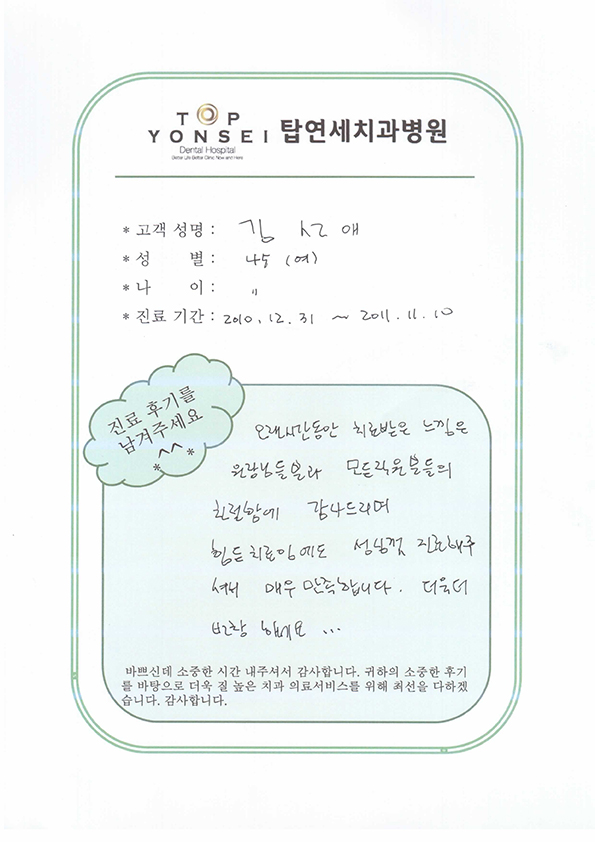 TOP
YONSEI 탑연세치과병원
Dental Hospital
Better Life Better Clinic Now and Here
* 고객 성명 : 김 선 애
* 성 별 : 45 (여)
* 나 이 : "
* 진료 기간 : 2010. 12. 31 ~ 2011. 11. 10
진료 후기를
남겨주세요
*^^*
오래시간동안 치료받은 느낌은
원장님들분과 모든직원분들의
친절함에 감사드리며
힘든치료임에도 성심껏 진료해주
셔서 매우 만족합니다. 더욱더
번창 하세요 ...
바쁘신데 소중한 시간 내주셔서 감사합니다. 귀하의 소중한 후기
를 바탕으로 더욱 질 높은 치과 의료서비스를 위해 최선을 다하겠
습니다. 감사합니다.